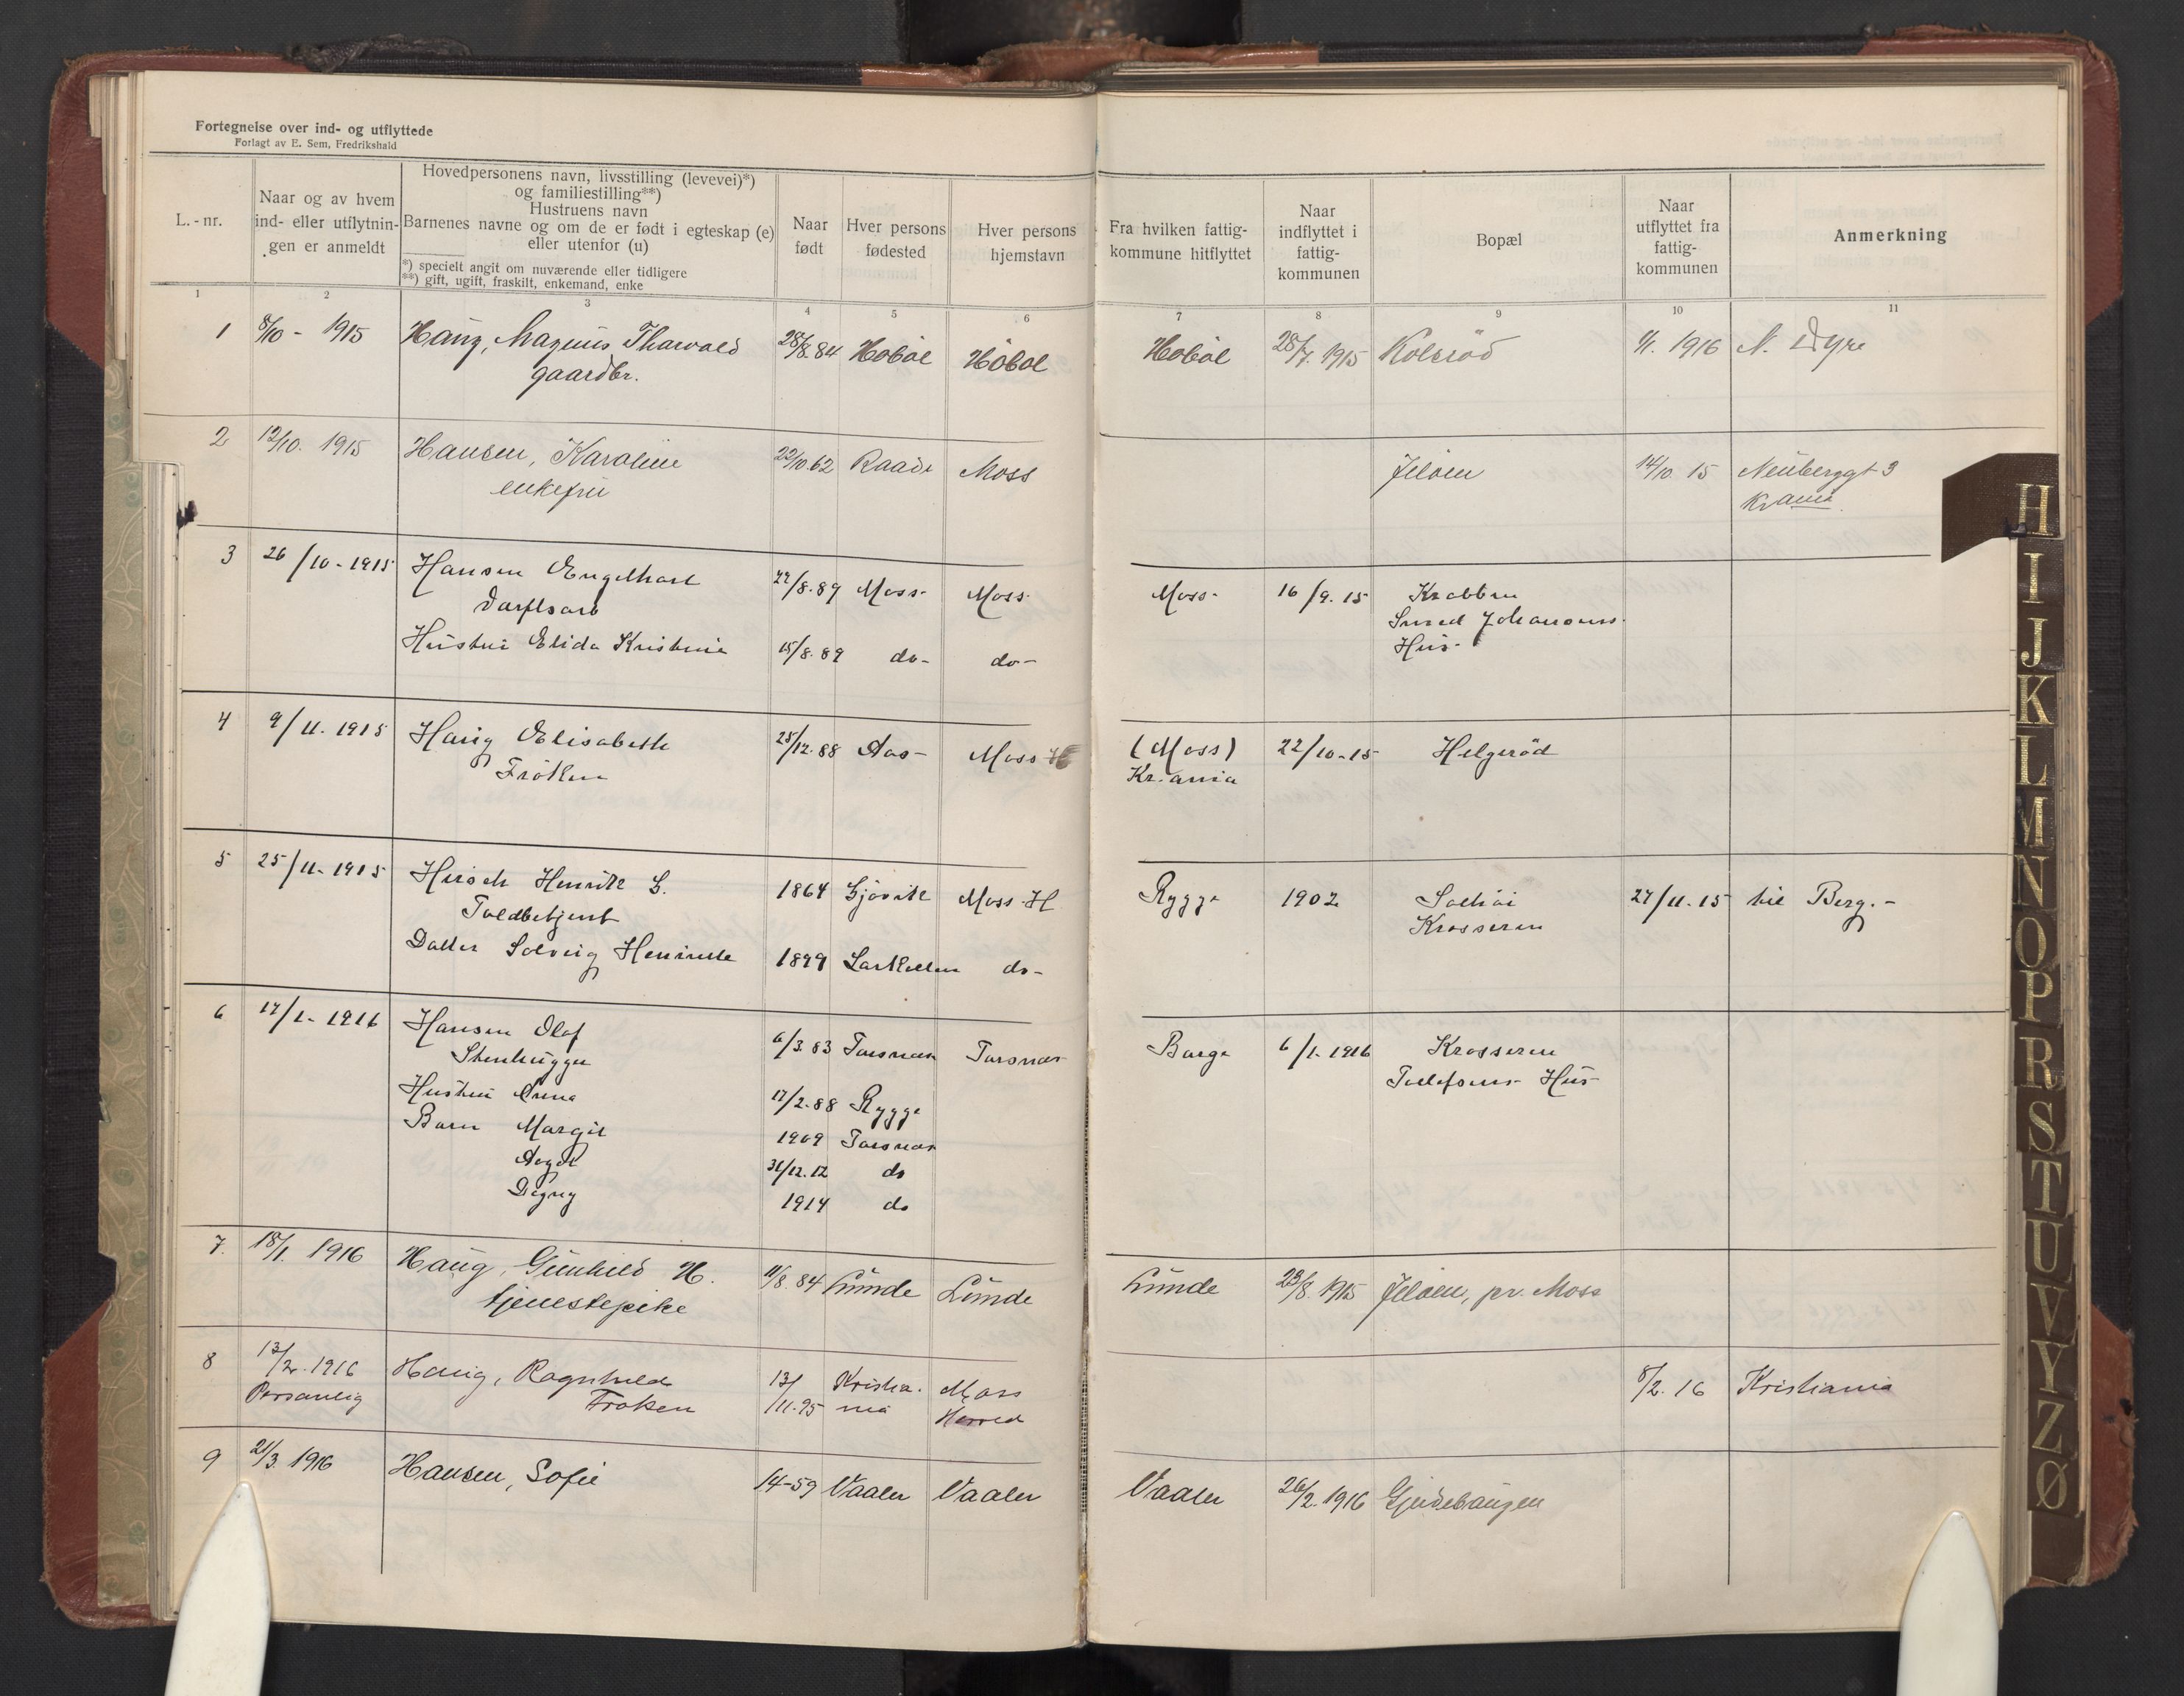 Fortegnelse over ind- og utflyttede
Forlagt av E. Sem, Fredrikshald
L.-nr.
Naar og av hvem
ind- eller utflytnin-
gen er anmeldt
Hovedpersonens navn, livsstilling (levevei)*)
og familiestilling**)
Hustruens navn
Barnenes navne og om de er født i egteskap (e)
eller utenfor (u)
*) specielt angit om nuværende eller tidligere
**) gift, ugift, fraskilt, enkemand, enke
Naar
født
Hver persons
fødested
Hver persons
hjemstavn
Fra hvilken fattig-
kommune hitflyttet
Naar
indflyttet i
fattig-
kommunen
Bopæl
Naar
utflyttet fra
fattig-
kommunen
Anmerkning
1 2 3 4 5 6 7 8 9 10 11
1 8/10 - 1915 Haug, Magnus Tharvald 28/8.84 Hobøl Hobøl Hobøl 28/7. 1915 Kolsrød 1/1. 1916 N. Dyre
gaardbr.
2 12/10. 1915 Hansen, Karoline 22/10.62 Raade Moss Jeløen 14/10. 15 Neuberggt 3
enkefru Kr.ania
3 26/10-1915 Hansen Engelhart 22/8.89 Moss- Moss- Moss- 16/9. 15 Krabben
Smed Johansens
Hus-
Hustru Elida Kristine 15/8.89 do- do-
4 9/11. 1915 Haug Elisabeth 25/12.88 Aas- Moss H (Moss) 22/10-15 Helgerød
Frøken Kr.ania
5 25/11-1915 Hirsch Henrik G. 1864 Gjøvik Moss-H Rygge 1902 Solhøi 27/11.15 til Berg.-
Toldbetjent Krosseren
Datter Solveig Henriette 1899 Larkollen do-
6 17/1-1916 Hansen Olaf 6/3.83 Torsnæs Torsnæs Borge 6/1-1916 Krosseren
Stenhugger Tollefsens- Hus-
Hustru Anna 17/2-88 Rygge
Barn Margit 1909 Torsnæs
Aagot 31/12.12 do
Dagny 1914 do
7. 18/1. 1916 Haug, Gunhild H. 11/8.84 Lunde Lunde Lunde 23/8. 1915 Jeløen, pr. Moss
tjenestepike
8 13/2.1916 Haug, Ragnhild 13/11-95 Kristia- Moss 8/2.16 Kristiania
Personlig Frøken nia Herred
9 21/3. 1916 Hansen, Sofie 14-59 Vaaler Vaaler Vaaler 26/2.1916 Gjerdebaugen
H
I
J
K
L
M
N
O
P
R
S
T
U
V
Y
Z
Ø